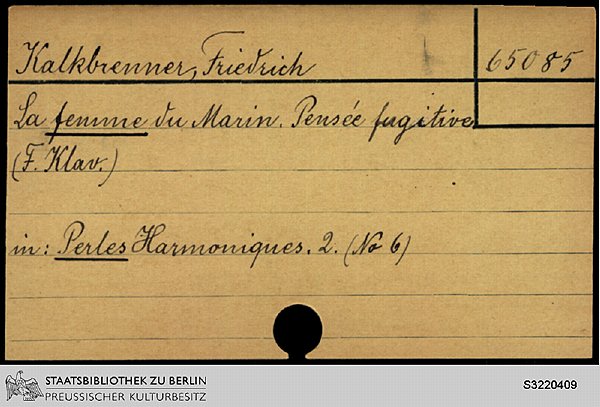 Kalkbrenner, Friedrich 65085
La femme du Marin. Pensée fugitive
(F. Klav.)
in: Perles Harmoniques. 2. (No 6)
STAATSBIBLIOTHEK ZU BERLIN
PREUSSISCHER KULTURBESITZ
S3220409